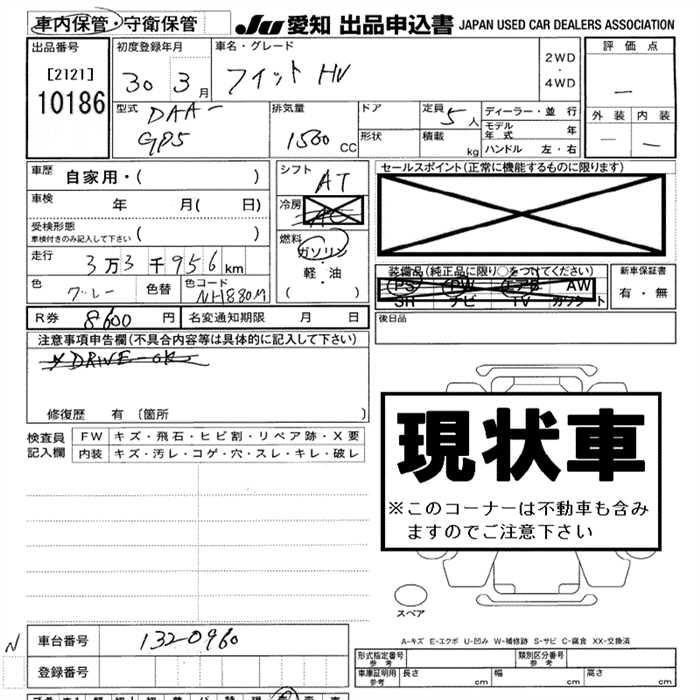 車内保管・守衛保管 JU 愛知 出品申込書 JAPAN USED CAR DEALERS ASSOCIATION
出品番号 初度登録年月 車名・グレード 評価点
[2121] 30年3月 フィット HV 2WD・4WD —
10186
型式 DAA-GP5 排気量 1500 CC ドア 形状 定員 5人 積載 kg ディーラー・並行 モデル年式 年 ハンドル 左・右 外装 — 内装 —
車歴 自家用・( ) シフト AT セールスポイント(正常に機能するものに限ります)
車検 年 月( 日) 冷房 AC
受検形態 車検付きのみ記入して下さい ( ) 燃料 ガソリン・軽・油 ( )
走行 3万3千956km
装備品(純正品に限り○をつけてください) 新車保証書
PS PW エアB AW 有・無
SH ナビ TV カセット
色 グレー 色替 色コード NH880M
後日品
R券 8600円 名変通知期限 月 日
注意事項申告欄(不具合内容等は具体的に記入して下さい)
※DRIVE-OK
修復歴 有 〔箇所 〕
現状車
※このコーナーは不動車も含み
ますのでご注意下さい
検査員記入欄 FW キズ・飛石・ヒビ割・リペア跡・X要
内装 キズ・汚レ・コゲ・穴・スレ・キレ・破レ
スペア
A-キズ E-エクボ U-凹み W-補修跡 S-サビ C-腐食 XX-交換済
N 車台番号 1320960
登録番号
形式指定番号 参考 類別区分番号 参考
車庫証明用 参考 長さ cm 幅 cm 高さ cm